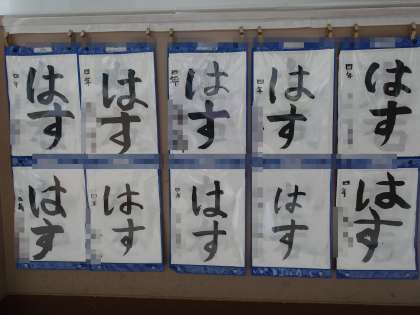 はす
四年
はす
四年
はす
四年
はす
四年
はす
四年
はす
四年
はす
四年
はす
四年
はす
四年
はす
四年